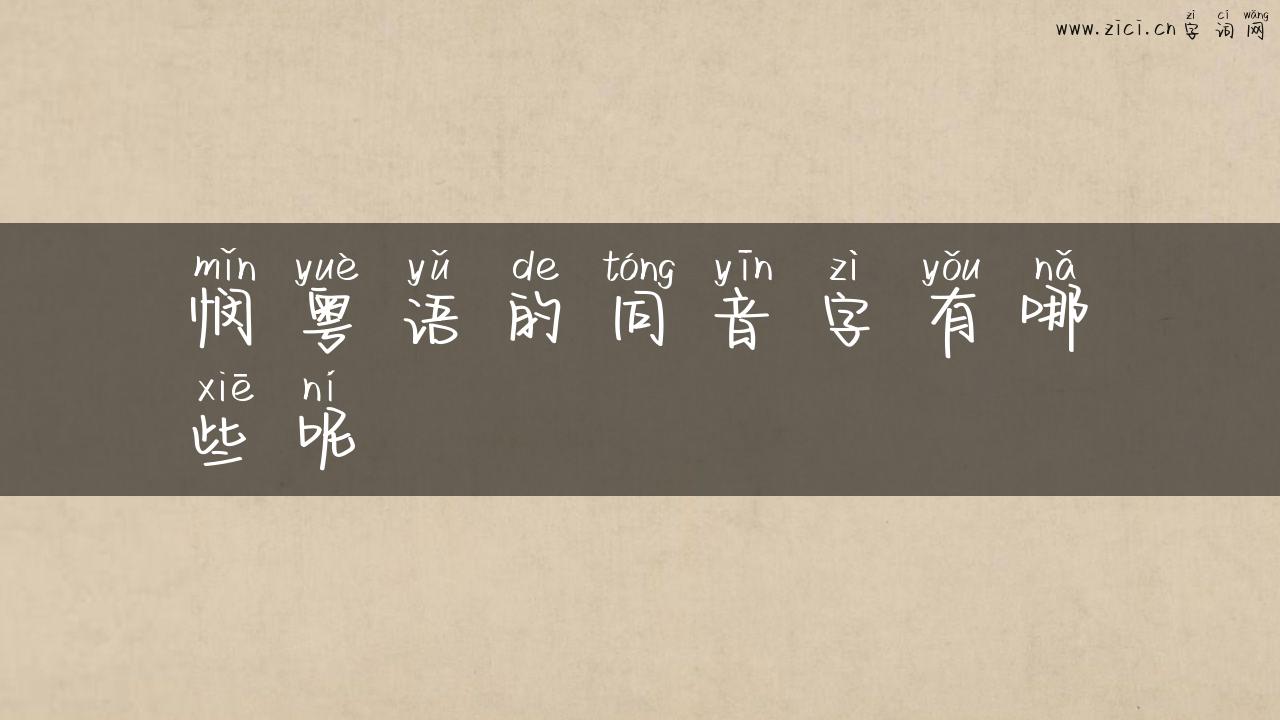 zì cí wǎng
www.zici.cn 字词网
mǐn yuè yǔ de tóng yīn zì yǒu nǎ
悯粤语的同音字有哪
xiē ní
些呢